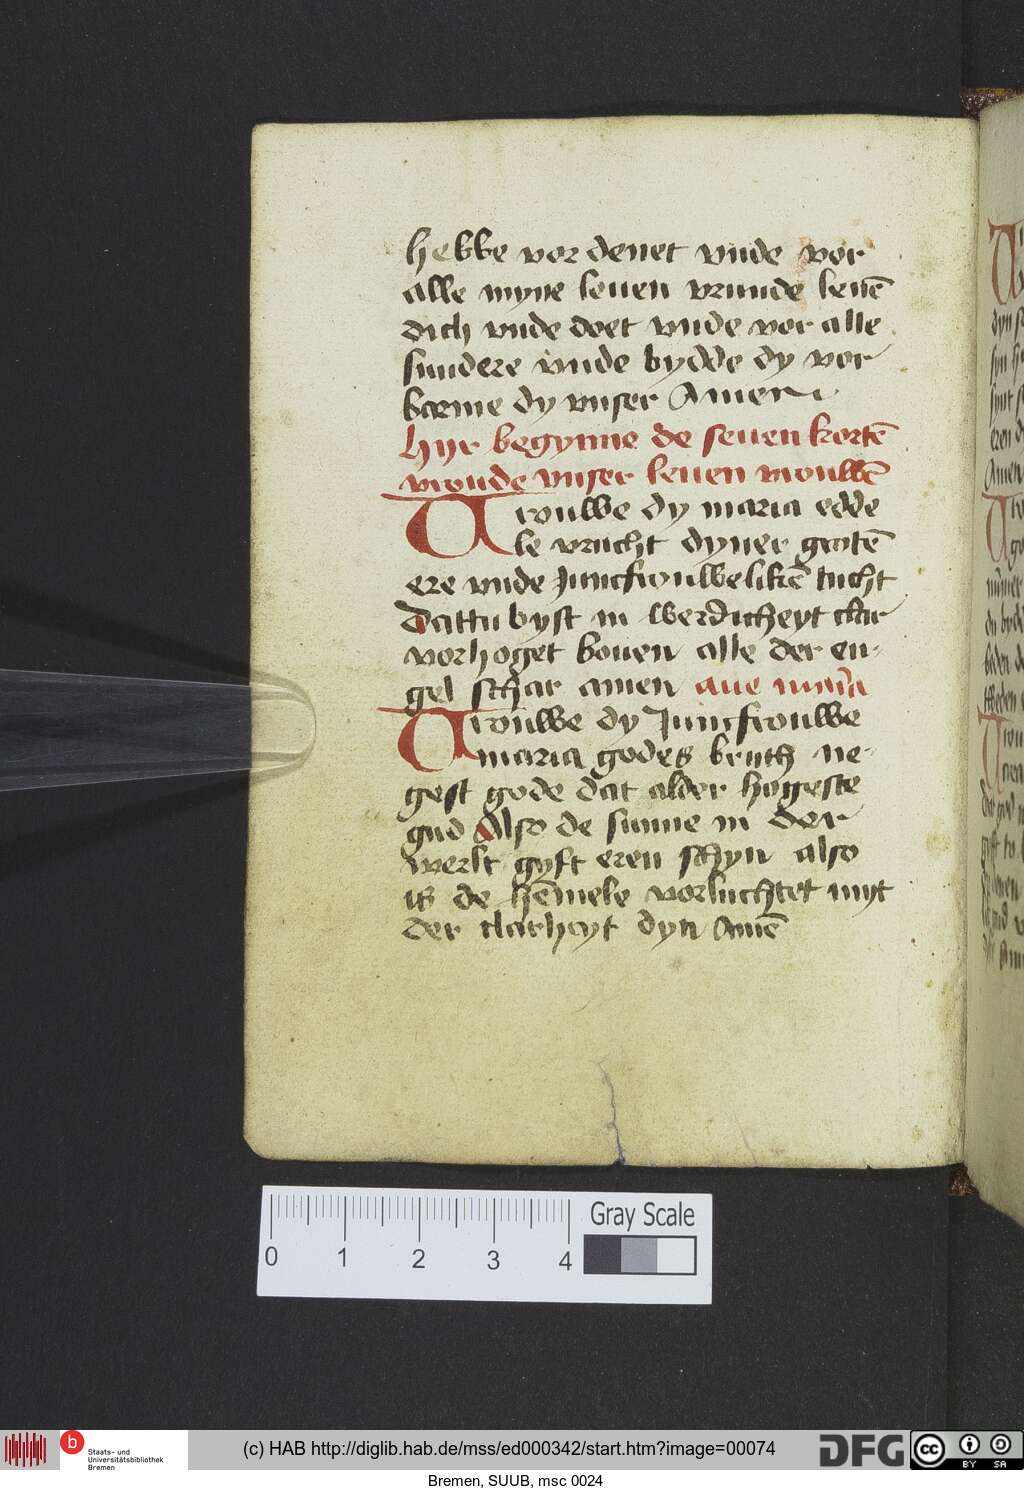 hebbe vor denet vnde vor
alle myne leuen vrunde leuē
dich vnde doet vnde vor alle
sundere vnde bydde dy vor
barme dy vnser Amen
hyr begynne de seuen kortē
vroude vnser leuen vrouwē
Vrouwe dy maria edde
le vrucht dyner grotē
ere vnde Juncfrouwelikē tucht
Dattu byst in werdicheyt clar
vorhoget bouen alle der en-
gel schar amen aue maria
Vrouwe dy Juncfrouwe
maria godes bruth ne-
gest gode dat alder hogeste
gud Also de sunne in der
werlt gyft eren schyn also
is de hēmele vorluchtet myt
der clarheyt dyn Amē
0 1 2 3 4
Gray Scale
Staats- und
Universitätsbibliothek
Bremen
(c) HAB http://diglib.hab.de/mss/ed000342/start.htm?image=00074
DFG
cc BY SA
Bremen, SUUB, msc 0024